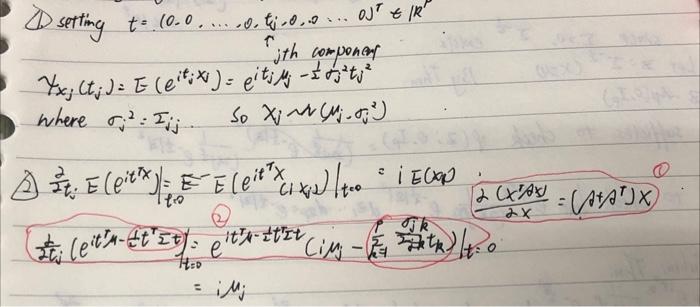 ① setting t = (0, 0, ...., 0, tj, 0, 0 ... 0)ᵀ ∈ ℝᵖ
↑
jth component
ψxj(tj) = E(e^{itjxj}) = e^{itjμj - ½σj²tj²}
where σj² = Σjj. So Xj ~ N(μj, σj²)
①
② ∂/∂tj E(e^{itᵀX})|t=0 = E(e^{itᵀX}(iXj))|t=0 = iE(Xj)
∂(XᵀAX)/∂X = (A+Aᵀ)X
②
∂/∂tj (e^{itᵀμ - ½tᵀΣt})|t=0 = e^{itᵀμ - ½tᵀΣt} (iμj - Σ_{k=1}^{p} σjk tk)|t=0
= iμj